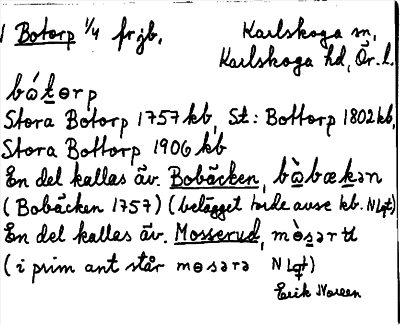 1 Botorp 1/4 frjb, Karlskoga sn,
Karlskoga hd, Ör. l.
bó̀tɵrp
Stora Botorp 1757 kb, St: Bottorp 1802 kb,
Stora Bottorp 1906 kb
En del kallas äv. Bobäcken, bὼbækən
(Bobäcken 1757) (belägget torde avse kb. NLgt)
En del kallas äv. Mosserud, mɵ̀sərʉ
(i prim ant står mɵsərə NLgt)
Erik Noreen